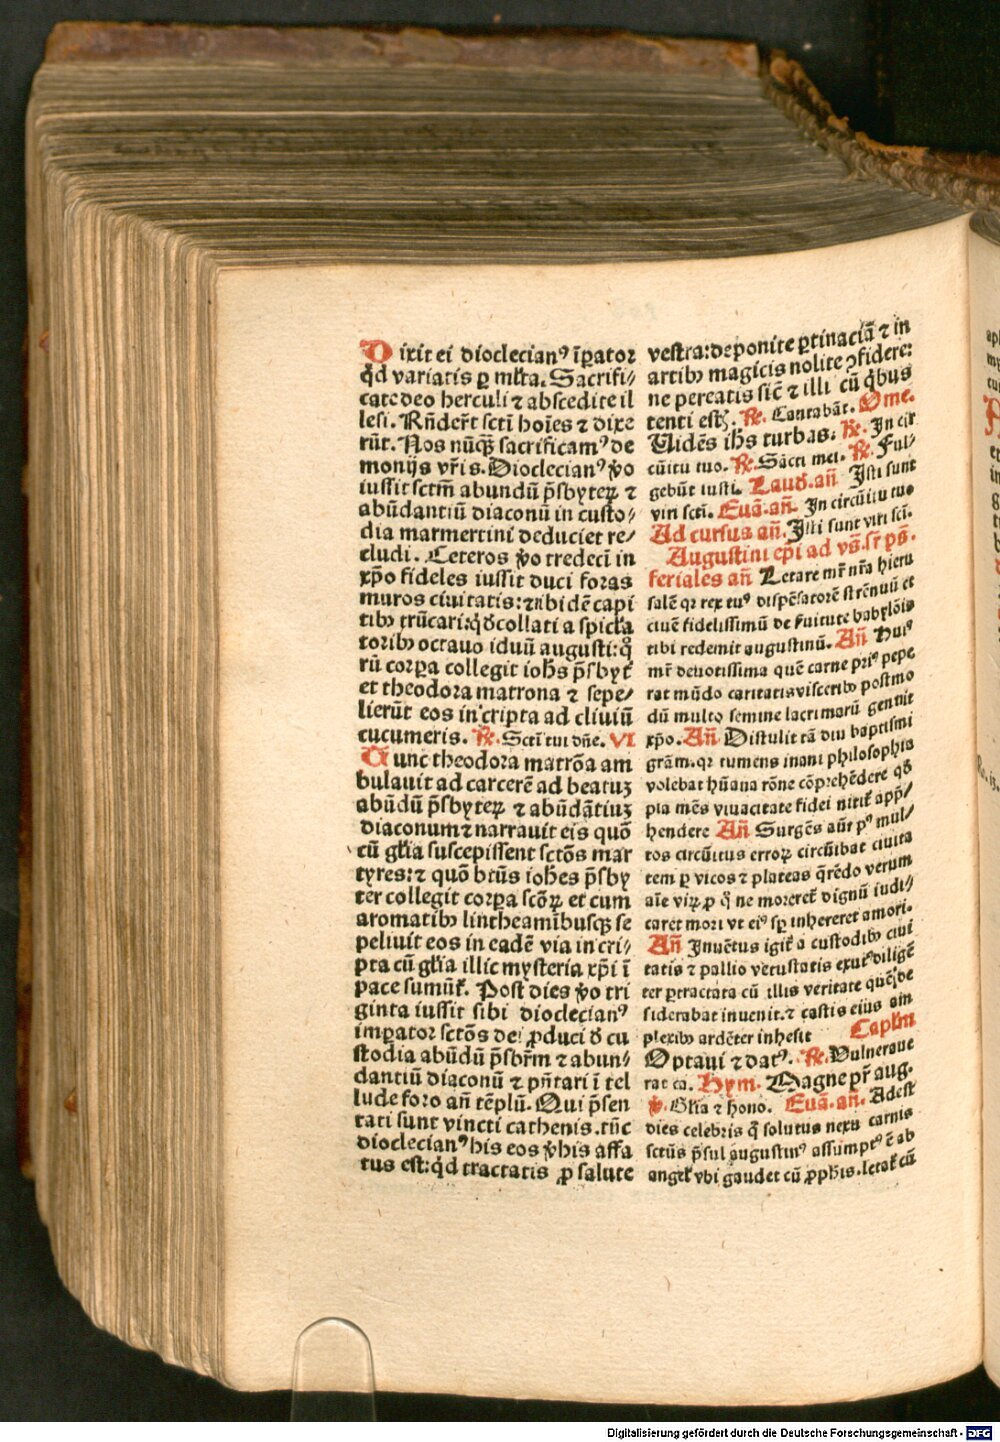 Dixit ei dioclecianꝰ īꝑator
qḋ variatis ꝑ ml̄ta. Sacrifi⸗
cate deo herculi ⁊ abscedite il
lesi. Rn̄der̄t sctī hoīes ⁊ dixe
rūt. Nos nūqꝫ sacrificamꝰ de
monijs vr̄is. Dioclecianꝰ ꝟo
iussit sctm̄ abundū p̄sbyteꝝ ⁊
abūdantiū diaconū in custo⸗
dia marmertini deduci et re⸗
cludi. Ceteros ꝟo tredecī in
xp̄o fideles iussit duci foras
muros ciuitatis: ⁊ ibidē capi
tibꝫ trūcari: qḋ collati a spicl̄a
toribꝫ octauo iduū augusti: qͦ
rū corꝑa collegit ioh̄s p̄sbyt̄
et theodora matrona ⁊ sepe⸗
lierūt eos in cripta ad cliuiū
cucumeris. ℞. Sctī tui dn̄e. VI
Tunc theodora matrōa am
bulauit ad carcerē ad beatuꝫ
abūdū p̄sbyteꝝ ⁊ abūdātiuꝫ
diaconum ⁊ narrauit eis quō
cū gl̄ia suscepissent sctōs mar
tyres: ⁊ quō btūs ioh̄es p̄sby
ter collegit corꝑa scōꝝ et cum
aromatibꝫ lintheamībusqꝫ se
peliuit eos in eadē via in cri⸗
pta cū gl̄ia illic mysteria xp̄i ī
pace sumūt̄. Post dies ꝟo tri
ginta iussit sibi dioclecianꝰ
imꝑator sctōs dei ꝓduci ḋ cu
stodia abūdū p̄sbr̄m ⁊ abun⸗
dantiū diaconū ⁊ pn̄tari ī tel
lude foro an̄ tēplū. Qui p̄sen
tati sunt vincti cathenis. tūc
dioclecianꝰ his eos ꝟbis affa
tus est: qḋ tractatis ꝓ salute
vestra: deponite ꝑtinaciā ⁊ in
artibꝫ magicis nolite ꝯfidere:
ne pereatis sic̄ ⁊ illi cū qͥbus
tenti est. ℞. Cantabāt. Ome.
Uidēs ih̄s turbas. ℞. In cir
cūitu tuo. ℞. Sācti mei. ℞. Ful⸗
gebūt iusti. Lauḋ. an̄ Isti sunt
viri sctī. Euā. an̄. In circūitu tuo
Ad cursus an̄. Isti sunt viri scī.
Augustini epī ad vs̄. sr̄ ps̄.
feriales an̄ Letare mr̄ nr̄a hieru
salē qr rex tuꝰ dispēsatorē strēnuū et
ciuē fidelissimū de ẜuitute babylōis
tibi redemit augustinū. An̄ Huiꝰ
mr̄ deuotissima quē carne priꝰ pepe
rat mūdo caritatis visceribꝫ postmo
dū multo semine lacrimarū genuit
xp̄o. An̄ Distulit tā diu baptismi
grām. qr tumens inani philosophia
volebat hūana rōne cōprehēdere qḋ
pia mēs viuacitate fidei nitit̄ app̄⸗
hendere An̄ Surgēs aūt pꝰ mul⸗
tos circūitus erroꝝ circūibat ciuita
tem ꝑ vicos ⁊ plateas q̄rēdo verum
aīe viꝝ ꝓ qͦ ne moreret̄ dignū iudi⸗
caret mori vt eiꝰ sꝑ inhereret amori.
An̄ Inuētus igit̄ a custodibꝫ ciui
tatis ⁊ pallio vetustatis exutꝰ diligē
ter ꝑtractata cū illis veritate quē de
siderabat inuenit. ⁊ castis eius am
plexibꝫ ardēter inhesit Caplm̄
Optaui ⁊ datꝰ. ℞. Vulneraue
rat ca. Hym. Magne pr̄ aug.
℣. Gl̄ia ⁊ hono. Euā. an̄. Adest
dies celebris q̄ solutus nexu carnis
sctūs p̄sul augustinꝰ assumptꝰ ē ab
angel̄ vbi gaudet cū ꝓphīs. letat̄ cū
Digitalisierung gefördert durch die Deutsche Forschungsgemeinschaft - DFG